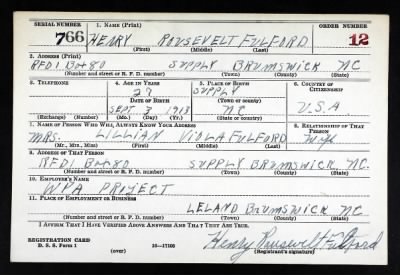 SERIAL NUMBER 1. NAME (Print) ORDER NUMBER
766 HENRY ROOSEVELT FULFORD 12
(First) (Middle) (Last)
2. ADDRESS (Print)
RFD 1 Box 80 SUPPLY BRUNSWICK NC
(Number and street or R. F. D. number) (Town) (County) (State)
3. TELEPHONE 4. AGE IN YEARS 5. PLACE OF BIRTH 6. COUNTRY OF CITIZENSHIP
27 SUPPLY
DATE OF BIRTH (Town or county)
SEPT 3 1913 NC U.S.A
(Exchange) (Number) (Mo.) (Day) (Yr.) (State or country)
7. NAME OF PERSON WHO WILL ALWAYS KNOW YOUR ADDRESS 8. RELATIONSHIP OF THAT PERSON
MRS. LILLIAN VIOLA FULFORD Wife
(Mr., Mrs., Miss) (First) (Middle) (Last)
9. ADDRESS OF THAT PERSON
RFD 1 Box 80 SUPPLY BRUNSWICK NC.
(Number and street or R. F. D. number) (Town) (County) (State)
10. EMPLOYER'S NAME
WPA PROJECT
11. PLACE OF EMPLOYMENT OR BUSINESS
LELAND BRUNSWICK NC
(Number and street or R. F. D. number) (Town) (County) (State)
I AFFIRM THAT I HAVE VERIFIED ABOVE ANSWERS AND THAT THEY ARE TRUE.
REGISTRATION CARD
D. S. S. Form 1 (over) 16—17105 Henry Roosevelt Fulford
(Registrant's signature)